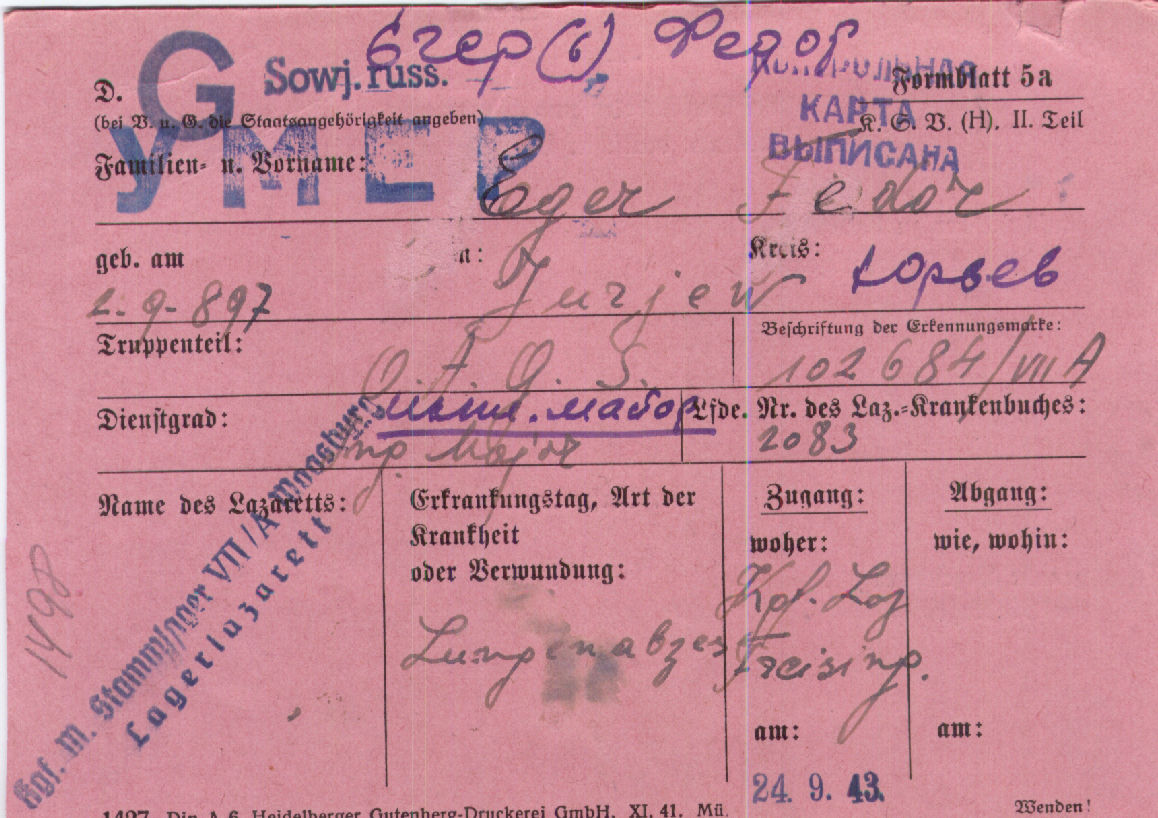 Егер(ь) Федор
D. G Sowj. russ.
КОНТРОЛЬНАЯ
КАРТА
ВЫПИСАНА
Formblatt 5a
K. S. V. (H). II. Teil
(bei V. u. G. die Staatsangehörigkeit angeben)
УМЕР
Familien- u. Vorname: Eger Fedor
geb. am 2.-9.-897
Jurjew
Kreis: Юрьев
Truppenteil:
Beschriftung der Erkennungsmarke:
102684/VII A
Dienstgrad: Ing. Major
инж. майор
Lfde. Nr. des Laz.-Krankenbuches:
2083
Name des Lazaretts:
Kgf. M. Stammlager VII/A Moosburg
Lagerlazarett
1498
Erkrankungstag, Art der
Krankheit
oder Verwundung:
Lungenabzes
Zugang:
woher:
Kgf. Lag
Freising.
am:
24. 9. 43.
Abgang:
wie, wohin:
am:
1427 Din A 6 Heidelberger Gutenberg-Druckerei GmbH. XI. 41. Mü.
Wenden!